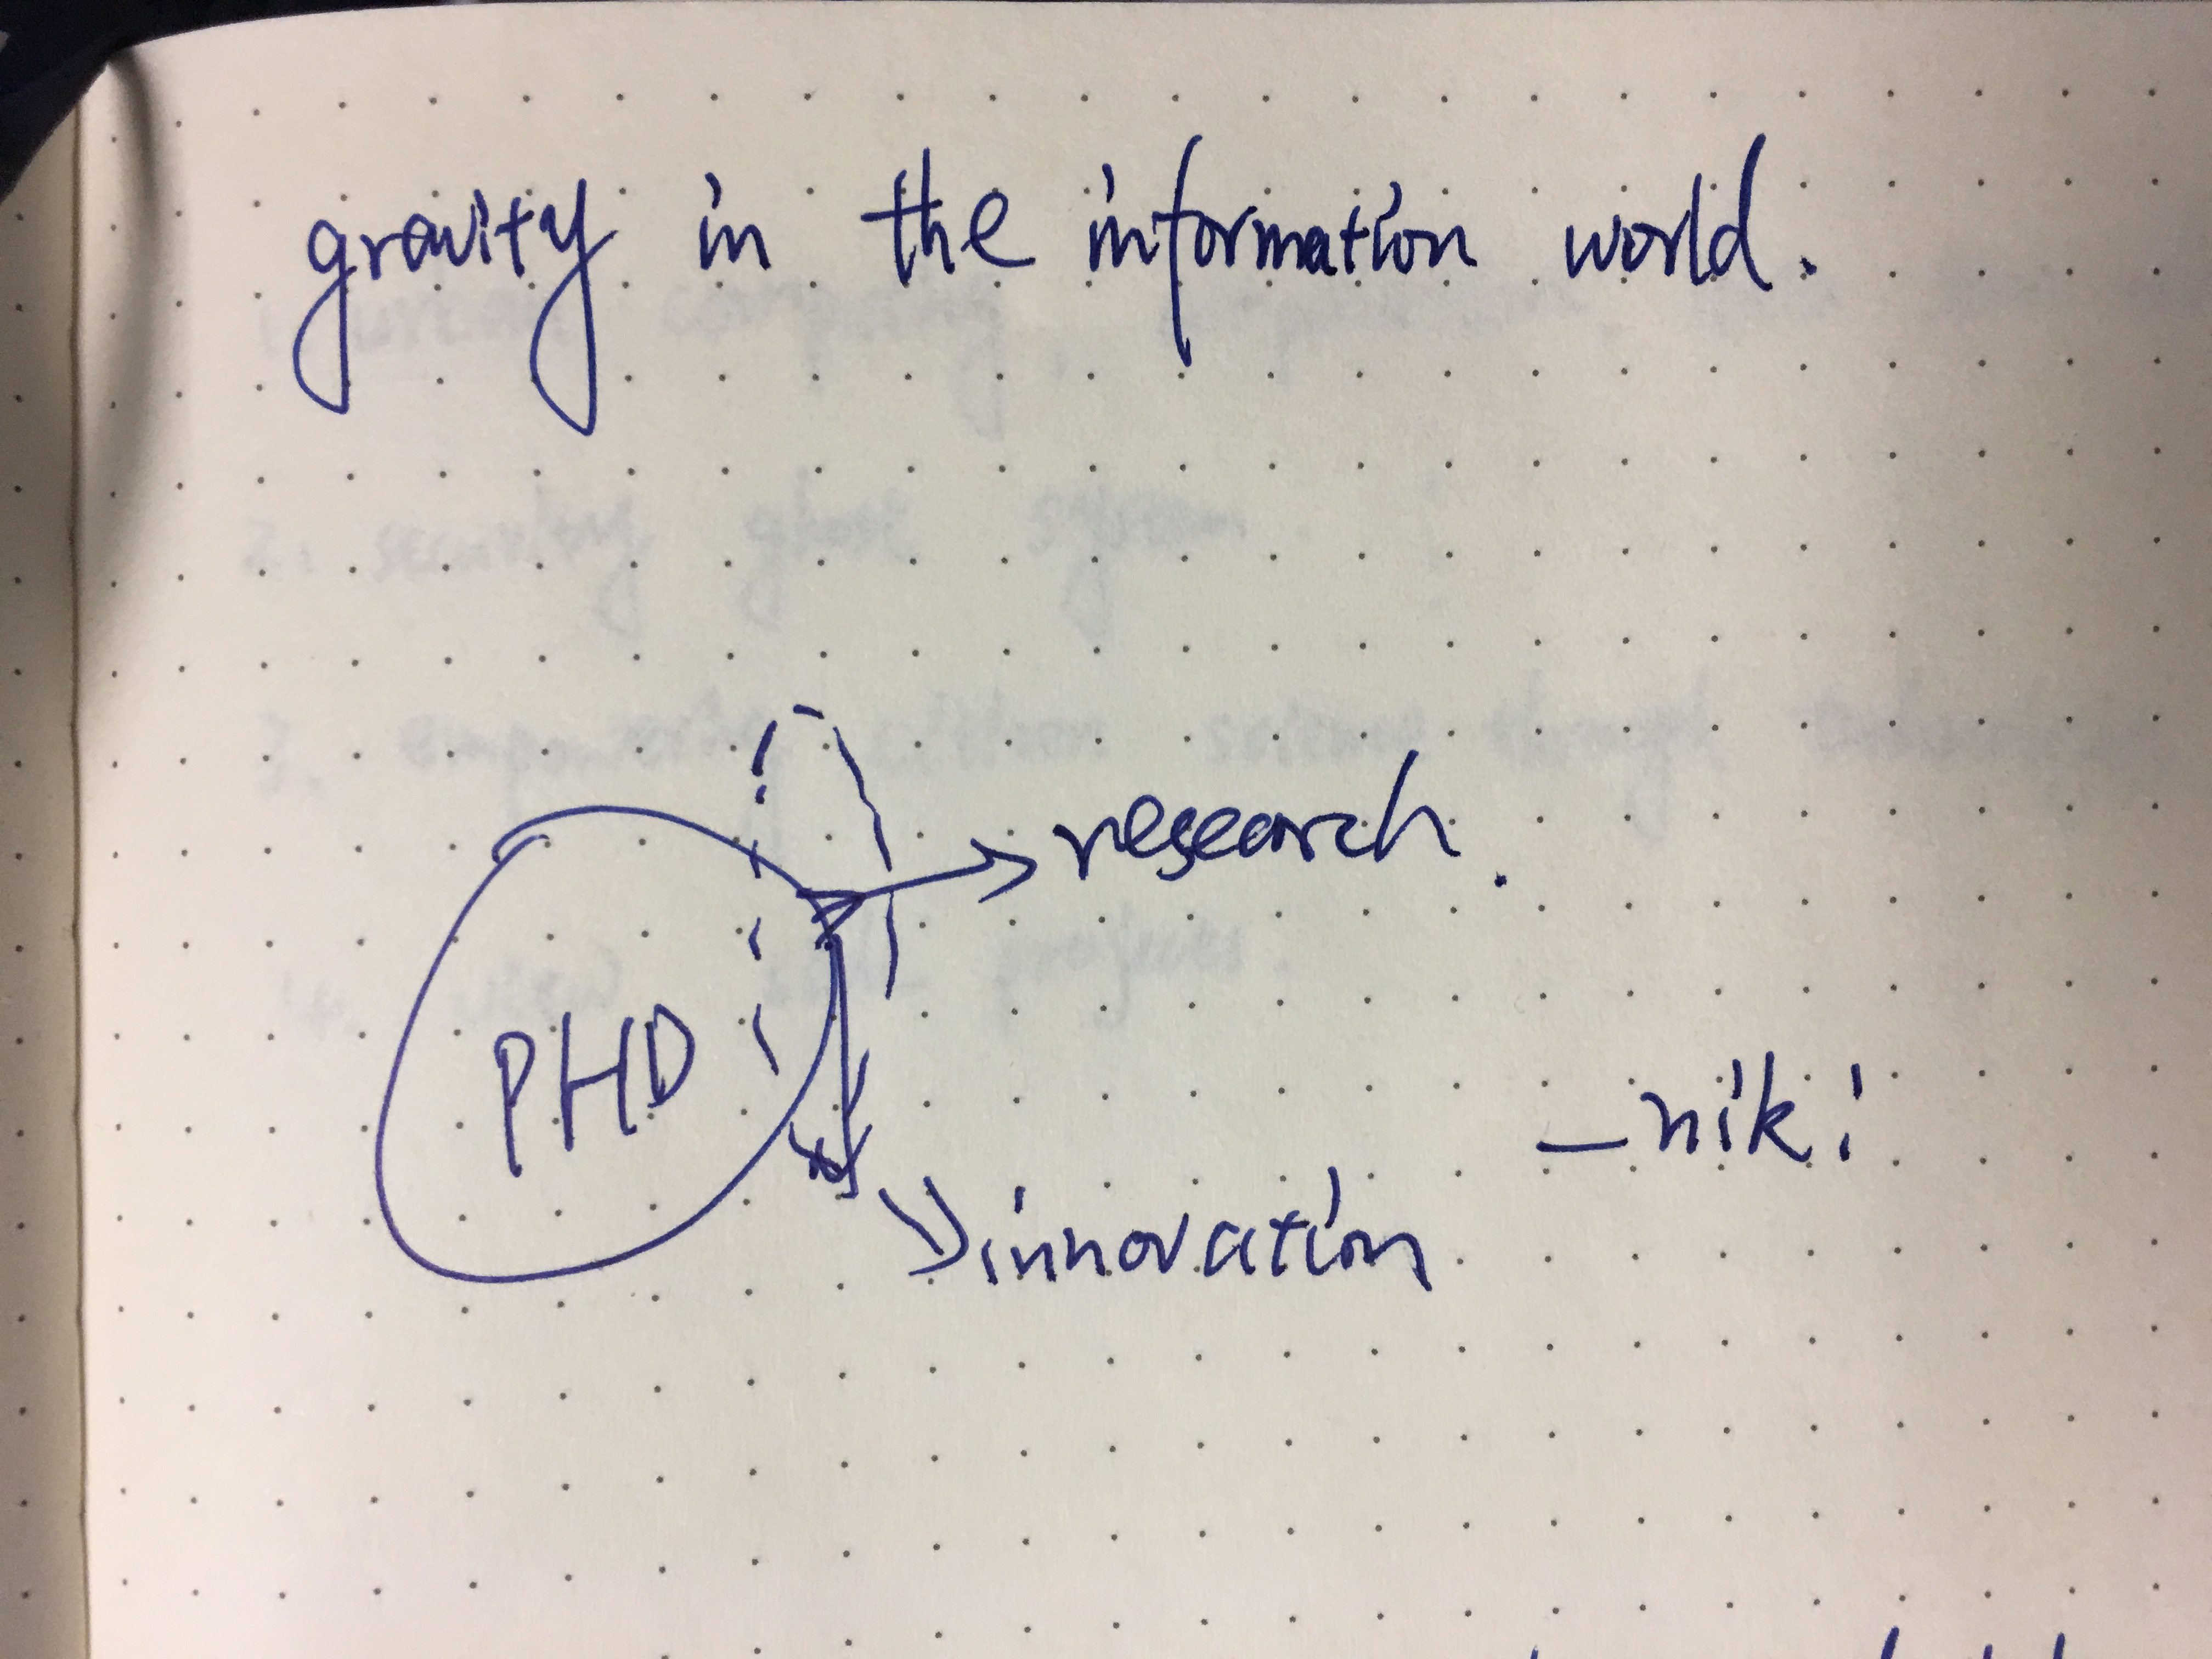 gravity in the information world.
PHD
research.
innovation
—niki